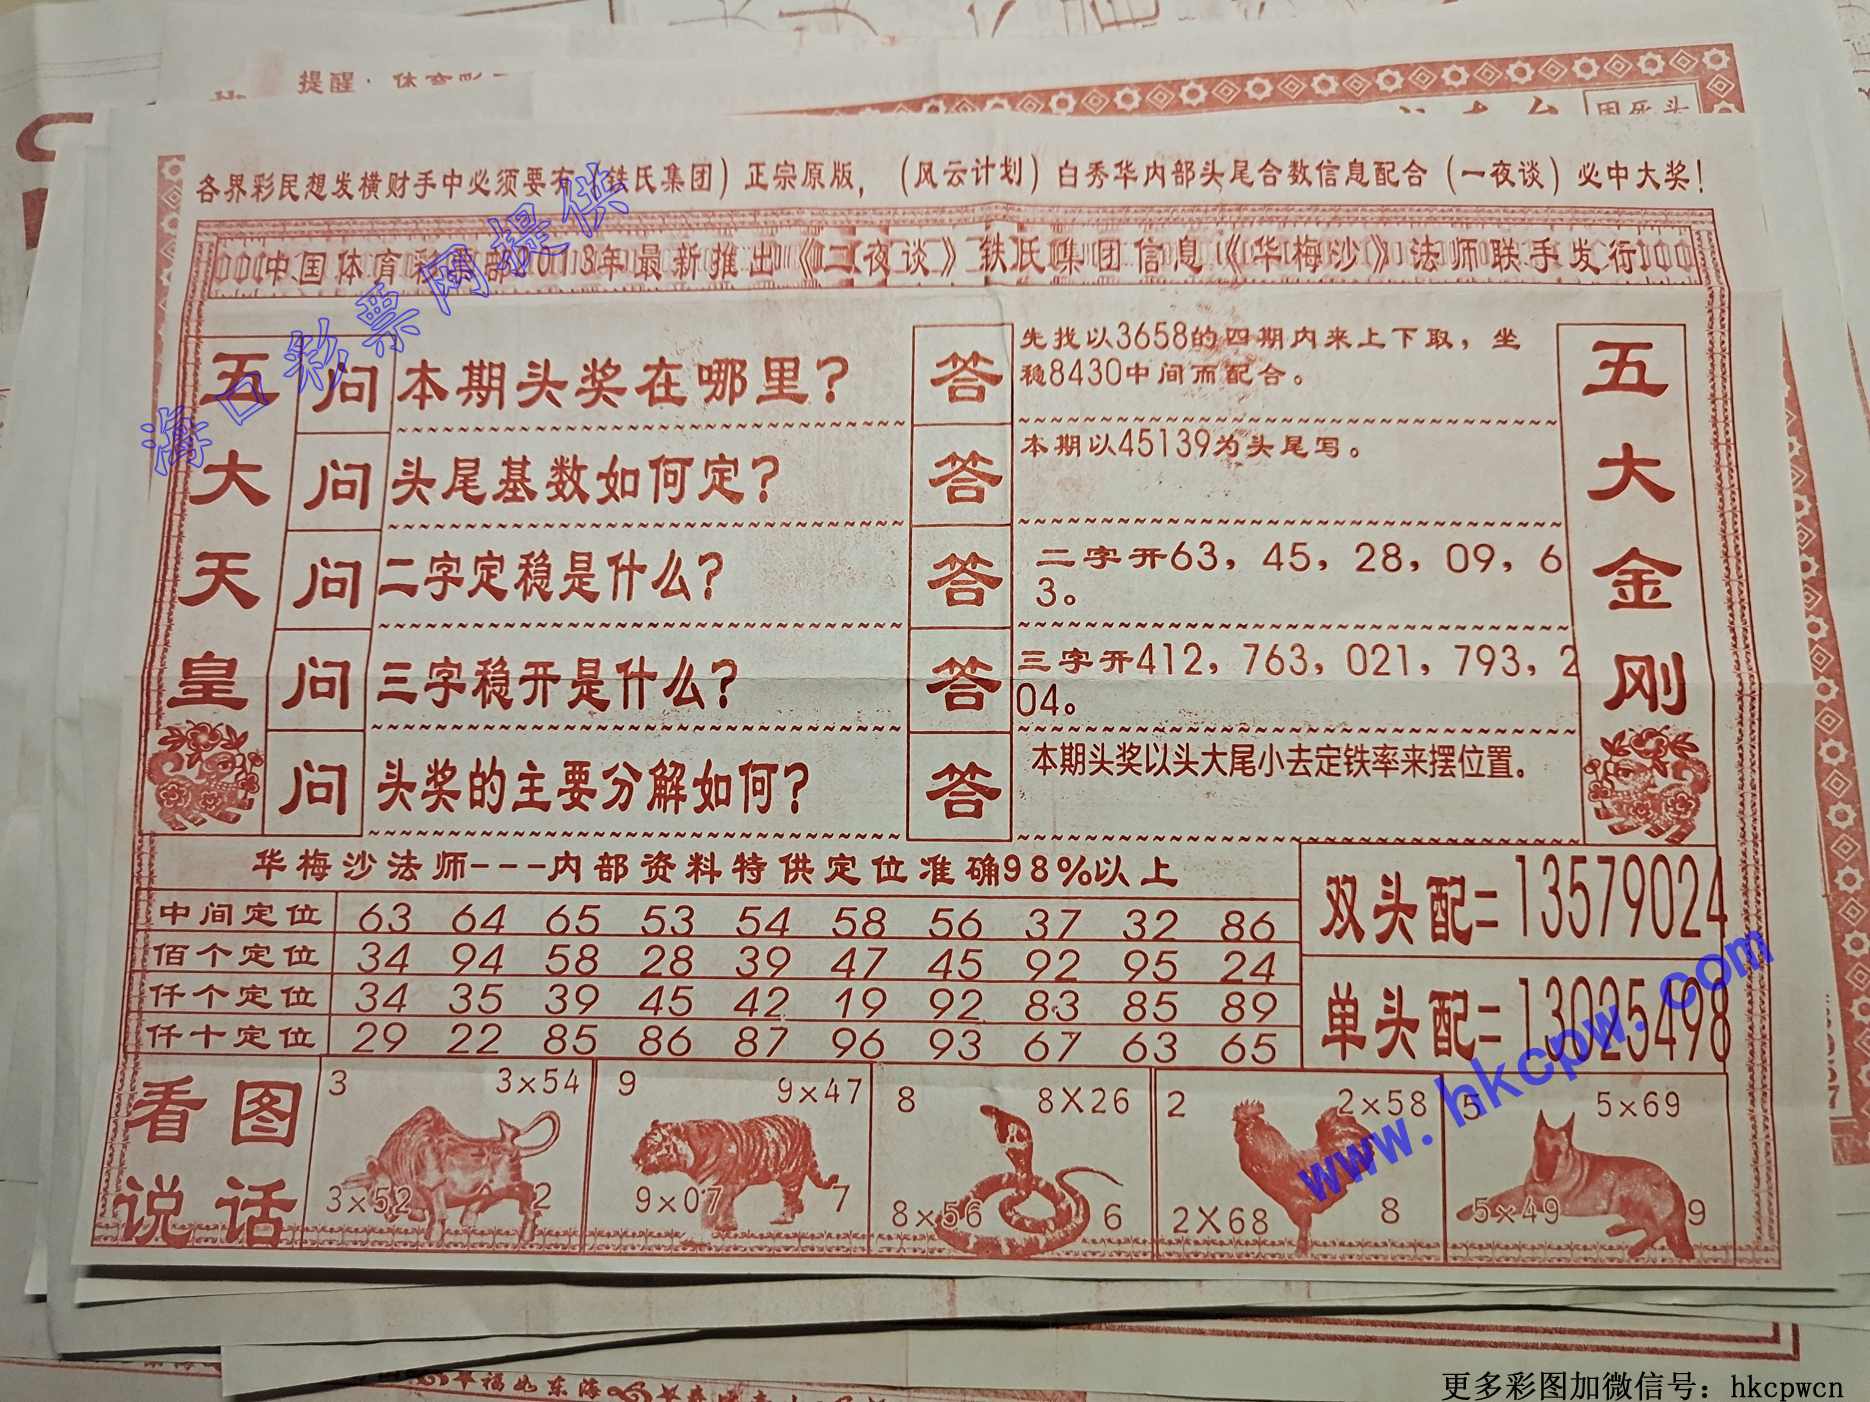 提醒：体育彩
各界彩民想发横财手中必须要有（轶氏集团）正宗原版，（风云计划）白秀华内部头尾合数信息配合（一夜谈）必中大奖！
中国体育彩票部2013年最新推出《二夜谈》轶氏集团信息《华梅沙》法师联手发行
海口彩票网提供
五大天皇
问 本期头奖在哪里？
答 先找以3658的四期内来上下取，坐
稳8430中间而配合。
问 头尾基数如何定？
答 本期以45139为头尾写。
问 二字定稳是什么？
答 二字开63，45，28，09，6
3。
问 三字稳开是什么？
答 三字开412，763，021，793，2
04。
问 头奖的主要分解如何？
答 本期头奖以头大尾小去定铁率来摆位置。
五大金刚
华梅沙法师---内部资料特供定位准确98%以上
中间定位 63 64 65 53 54 58 56 37 32 86
佰个定位 34 94 58 28 39 47 45 92 95 24
仟个定位 34 35 39 45 42 19 92 83 85 89
仟十定位 29 22 85 86 87 96 93 67 63 65
双头配=13579024
单头配=13025498
看图
说话
3 3×54
3×52 2
9 9×47
9×07 7
8 8X26
8×56 6
2 2×58
2X68 8
5 5×69
5×49 9
www.hkcpw.com
福如东海
更多彩图加微信号：hkcpwcn